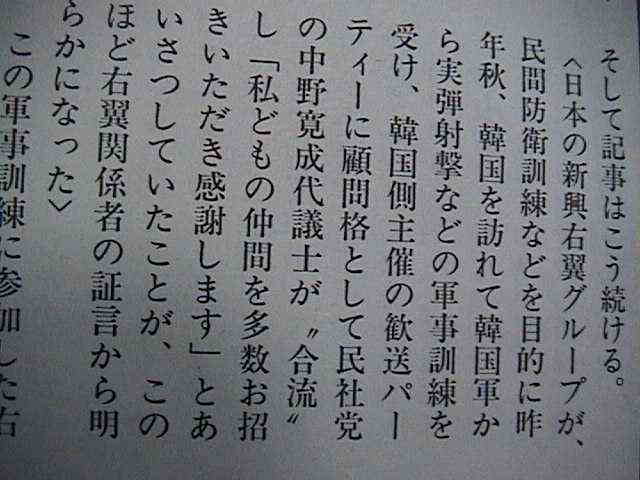 そして記事はこう続ける。
〈日本の新興右翼グループが、
民間防衛訓練などを目的に昨
年秋、韓国を訪れて韓国軍か
ら実弾射撃などの軍事訓練を
受け、韓国側主催の歓送パー
ティーに顧問格として民社党
の中野寛成代議士が〝合流〟
し「私どもの仲間を多数お招
きいただき感謝します」とあ
いさつしていたことが、この
ほど右翼関係者の証言から明
らかになった〉
この軍事訓練に参加した右